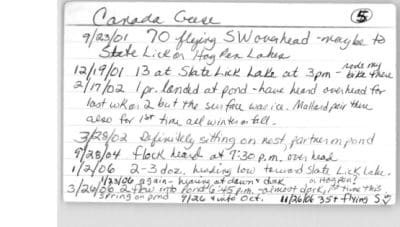 Canada Geese 5
9/23/01 70 flying SW overhead - maybe to
State Lick or Hog Pen Lakes
12/19/01 13 at Slate Lick Lake at 3pm - rode my bike there
2/17/02 1 pr. landed at pond - have heard overhead for
last wk or 2 but the surface was ice. Mallard pair there
also for 1st time all winter or fall.
3/28/02 Definitely sitting on nest, partner on pond
9/28/04 flock heard at 7:30 p.m. overhead
1/2/06 2-3 doz. heading low toward Slate Lick Lake.
1/23/06 again - hearing at dawn & dark or Hogpen?
3/26/06 2 flew into pond 6:45 p.m. - almost dark, 1st time this
spring on pond 9/26 & into Oct. 11/26/06 35+ flying S